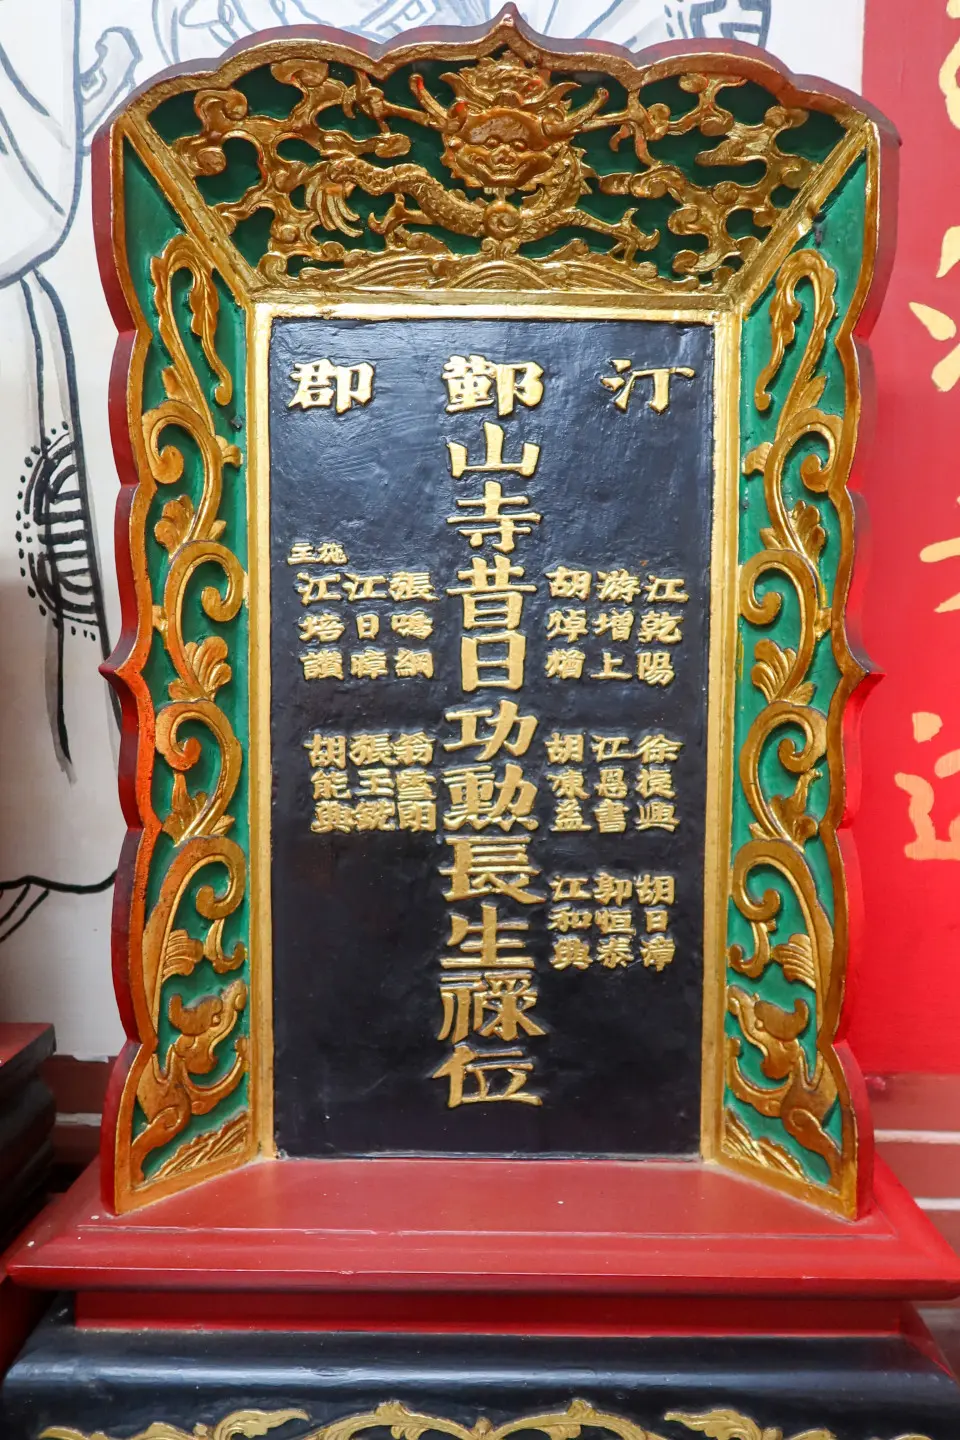 汀郡
鄞山寺昔日功勳長生祿位
江乾陽
游增上
胡焯猷
徐捷興
江恩書
胡康益
胡日漳
郭恒泰
江和興
張鳴綱
江日暲
施主
江培讃
翁雲朗
張玉鏡
胡能興